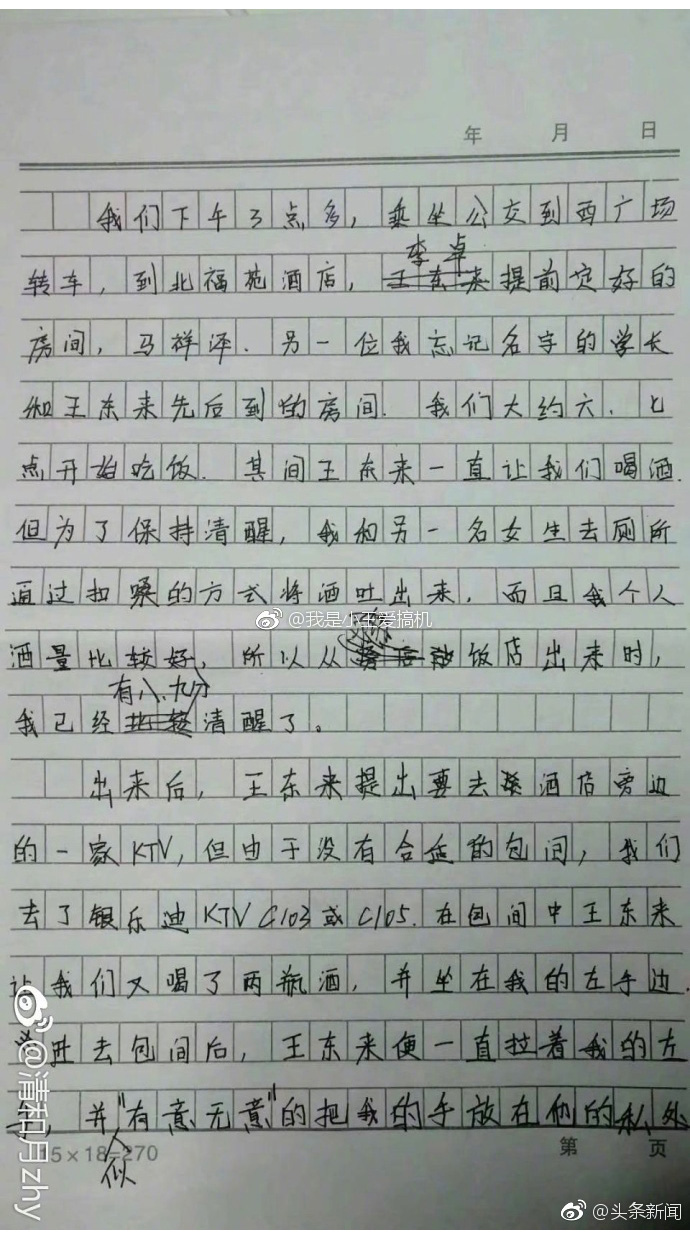 年 月 日
我们下午3点多，乘坐公交到西广场
李卓
转车，到北福苑酒店，王东来提前定好的
房间，马祥泽．另一位我忘记名字的学长
和王东来先后到的房间．我们大约六．七
点开始吃饭．其间王东来一直让我们喝酒．
但为了保持清醒，我和另一名女生去厕所
通过扣嗓的方式将酒吐出来．而且我个人
@我是小王爱搞机
酒量比较好，所以从饭店出来时，
有八、九分
我已经比较清醒了。
出来后，王东来提出要去酒店旁边
的一家KTV，但由于没有合适的包间，我们
去了银乐迪KTV C103或C105．在包间中王东来
让我们又喝了两瓶酒，并坐在我的左手边．
进去包间后，王东来便一直拉着我的左
并"有意无意"的把我的手放在他的私处
似
15×18=270 第 页
@清和月zhy
@头条新闻